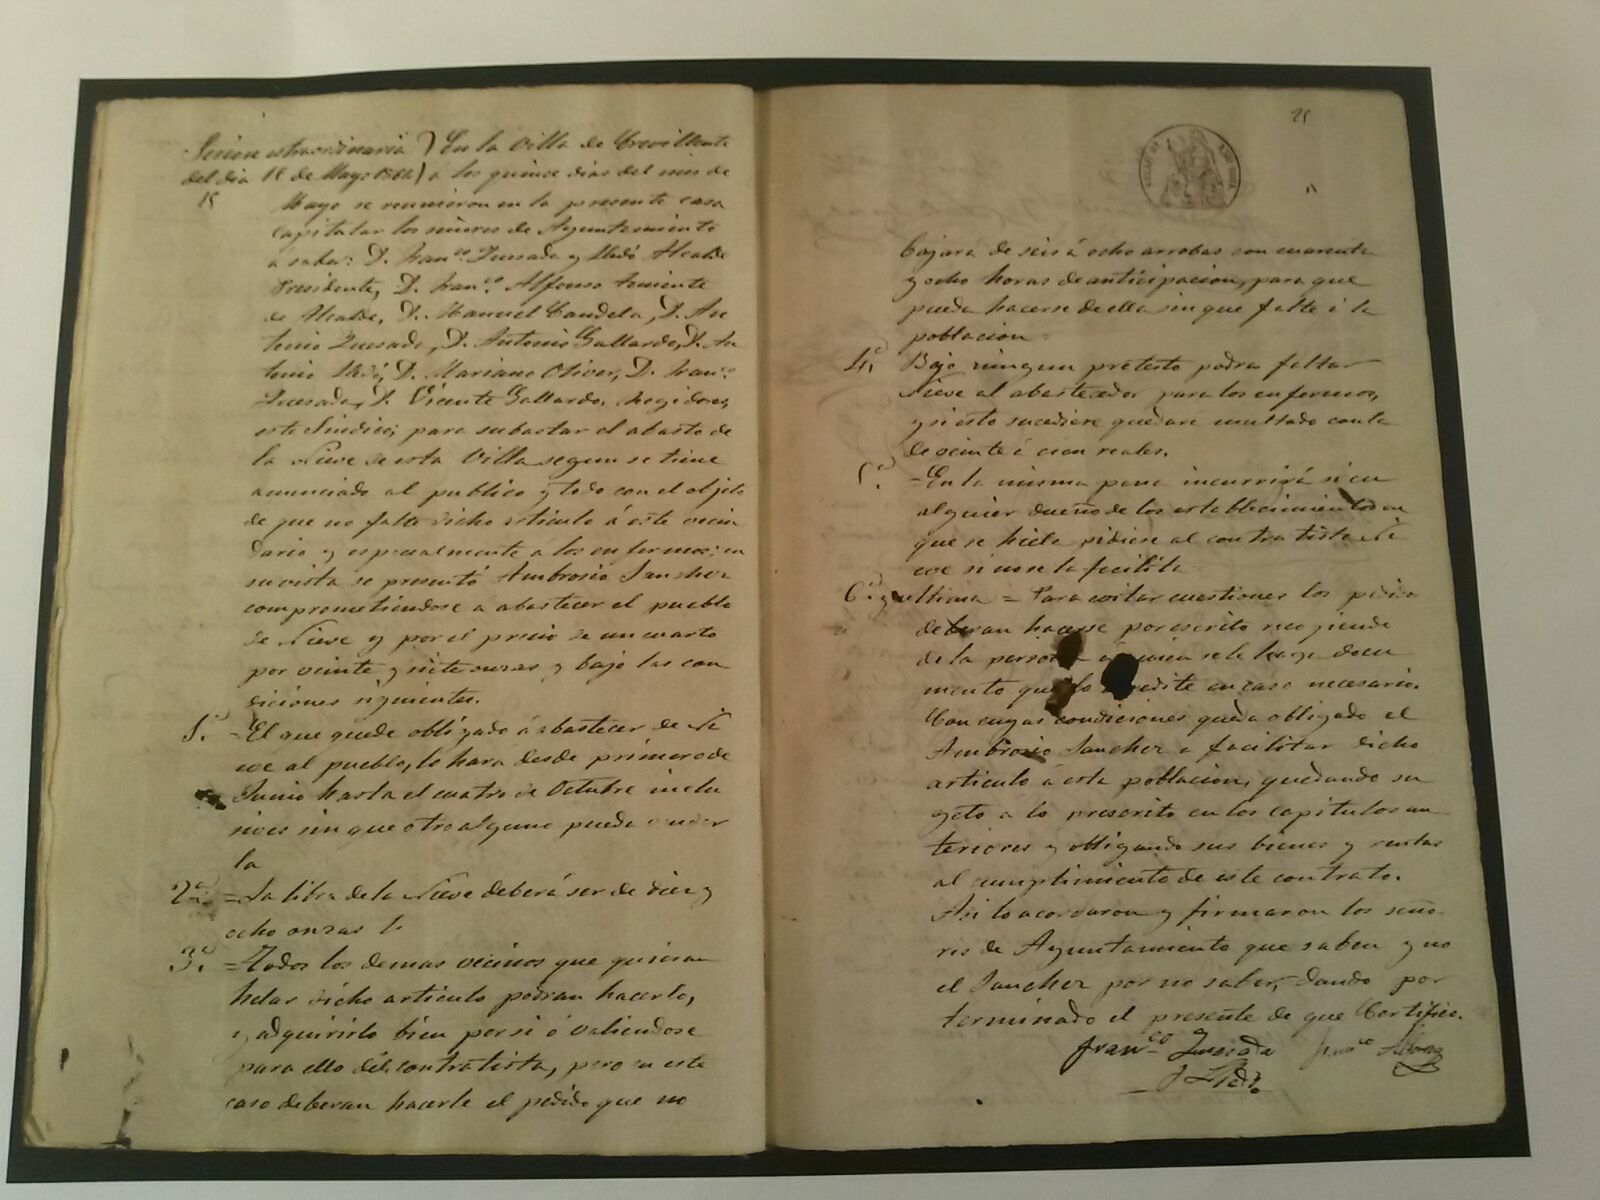 Sesion estraordinaria } En la Villa de Crevillente
del dia 15 de Mayo 1864 } a los quinse dias del mes de
15 Mayo se reunieron en la presente casa
capitular los señores de Ayuntamiento
a saber: D. Fran.co Quesada y Lledó Alcalde
Presidente, D. Fran.co Alfonso teniente
de Alcalde, D. Manuel Candela, D. An
tonio Quesada, D. Antonio Gallardo, D. An
tonio Lledó, D. Mariano Oliver, D. Fran.co
Quesada, D. Vicente Gallardo, Regidores,
este Sindico; para subastar el abasto de
la Nieve de esta Villa segun se tiene
anunciado al publico y todo con el objeto
de que no falte dicho articulo á este vecin
dario y especialmente a los enfermos; en
su vista se presentó Ambrosio Sanchez
comprometiendose a abastecer el pueblo
de Nieve y por el precio de un cuarto
por veinte y siete onzas y bajo las con
diciones siguientes.
1.ª = El que quede obligado á abastecer de Ni
eve al pueblo, lo hara desde primero de
Junio hasta el cuatro de Octubre inclu
sives sin que otro alguno pueda vender
la
2.ª = La libra de la Nieve deberá ser de diez y
ocho onzas
3.ª = Todos los demas vecinos que quieran
helar dicho articulo podran hacerlo,
y adquirirlo bien por si ó valiendose
para ello del contratista, pero en este
caso deberan hacerle el pedido que no
bajara de seis á ocho arrobas con cuarenta
y ocho horas de anticipacion, para que
pueda hacerse de ella sin que falte á la
poblacion =
4.ª Bajo ningun pretesto podra faltar
Nieve al abastecedor para los enfermos,
y si esto sucediere quedare multado con la
de veinte á cien reales.
5.ª = En la misma pena incurrirá si cu
alquier dueño de los establecimientos en
que se hiela pidiese al contratista Ni
eve si no se la facilita
6.ª y ultima = Para evitar cuestiones los pedidos
deberan hacerse por escrito recogiendo
de la persona a quien se le haga docu
mento que lo acredite en caso necesario.
Con cuyas condiciones queda obligado el
Ambrosio Sanchez a facilitar dicho
articulo á esta poblacion, quedando su
geto a lo prescrito en los capitulos an
teriores y obligando sus bienes y rentas
al cumplimiento de este contrato.
Asi lo acordaron y firmaron los seño
res de Ayuntamiento que saben y no
el Sanchez por no saber, dando por
terminado el presente de que Certifico.
Fran.co Quesada Fran.co Alfonso
y Lledó